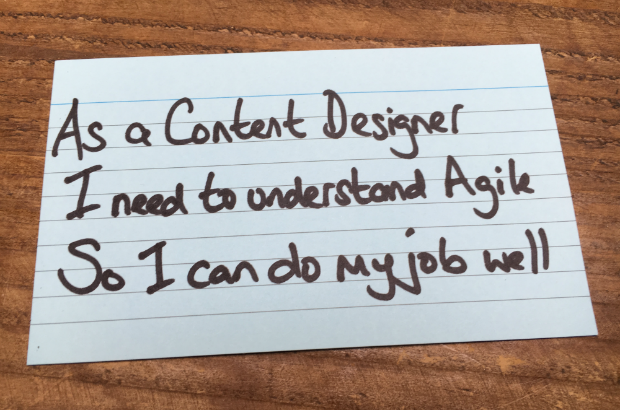 As a Content Designer
I need to understand Agile
So I can do my job well